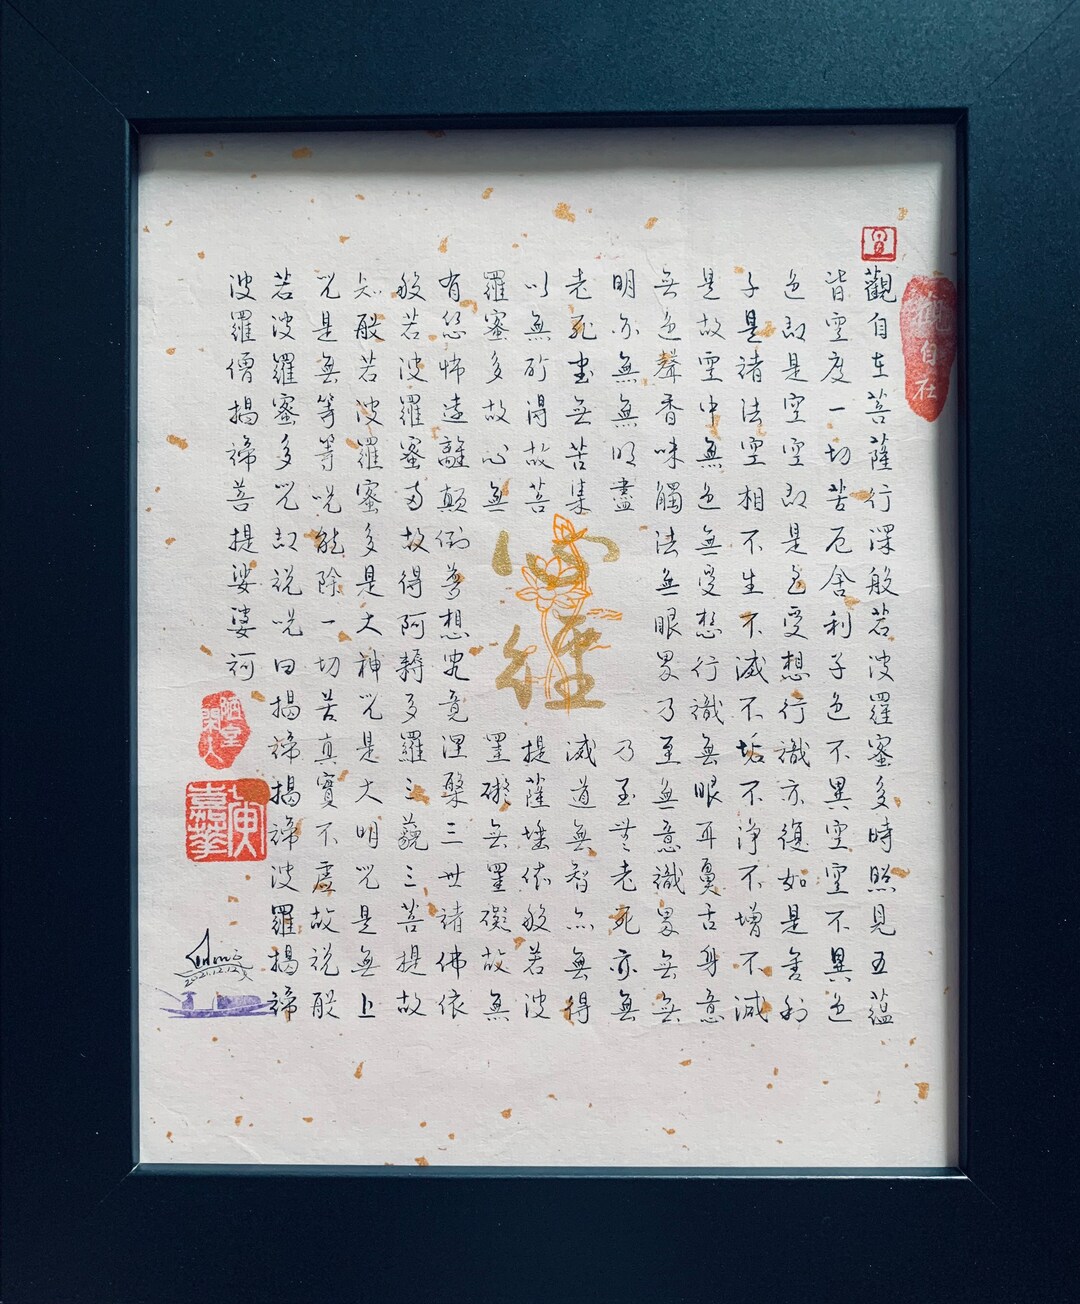 觀自在
觀自在菩薩行深般若波羅蜜多時照見五蘊
皆空度一切苦厄舍利子色不異空空不異色
色即是空空即是色受想行識亦復如是舍利
子是諸法空相不生不滅不垢不淨不增不減
是故空中無色無受想行識無眼耳鼻舌身意
無色聲香味觸法無眼界乃至無意識界無無
明亦無無明盡乃至無老死亦無
老死盡無苦集滅道無智亦無得
以無所得故菩提薩埵依般若波
羅蜜多故心無罣礙無罣礙故無
有恐怖遠離顛倒夢想究竟涅槃三世諸佛依
般若波羅蜜多故得阿耨多羅三藐三菩提故
知般若波羅蜜多是大神咒是大明咒是無上
咒是無等等咒能除一切苦真實不虛故說般
若波羅蜜多咒即說咒曰揭諦揭諦波羅揭諦
波羅僧揭諦菩提娑婆訶
心經
陋室閑人
2021.12.12